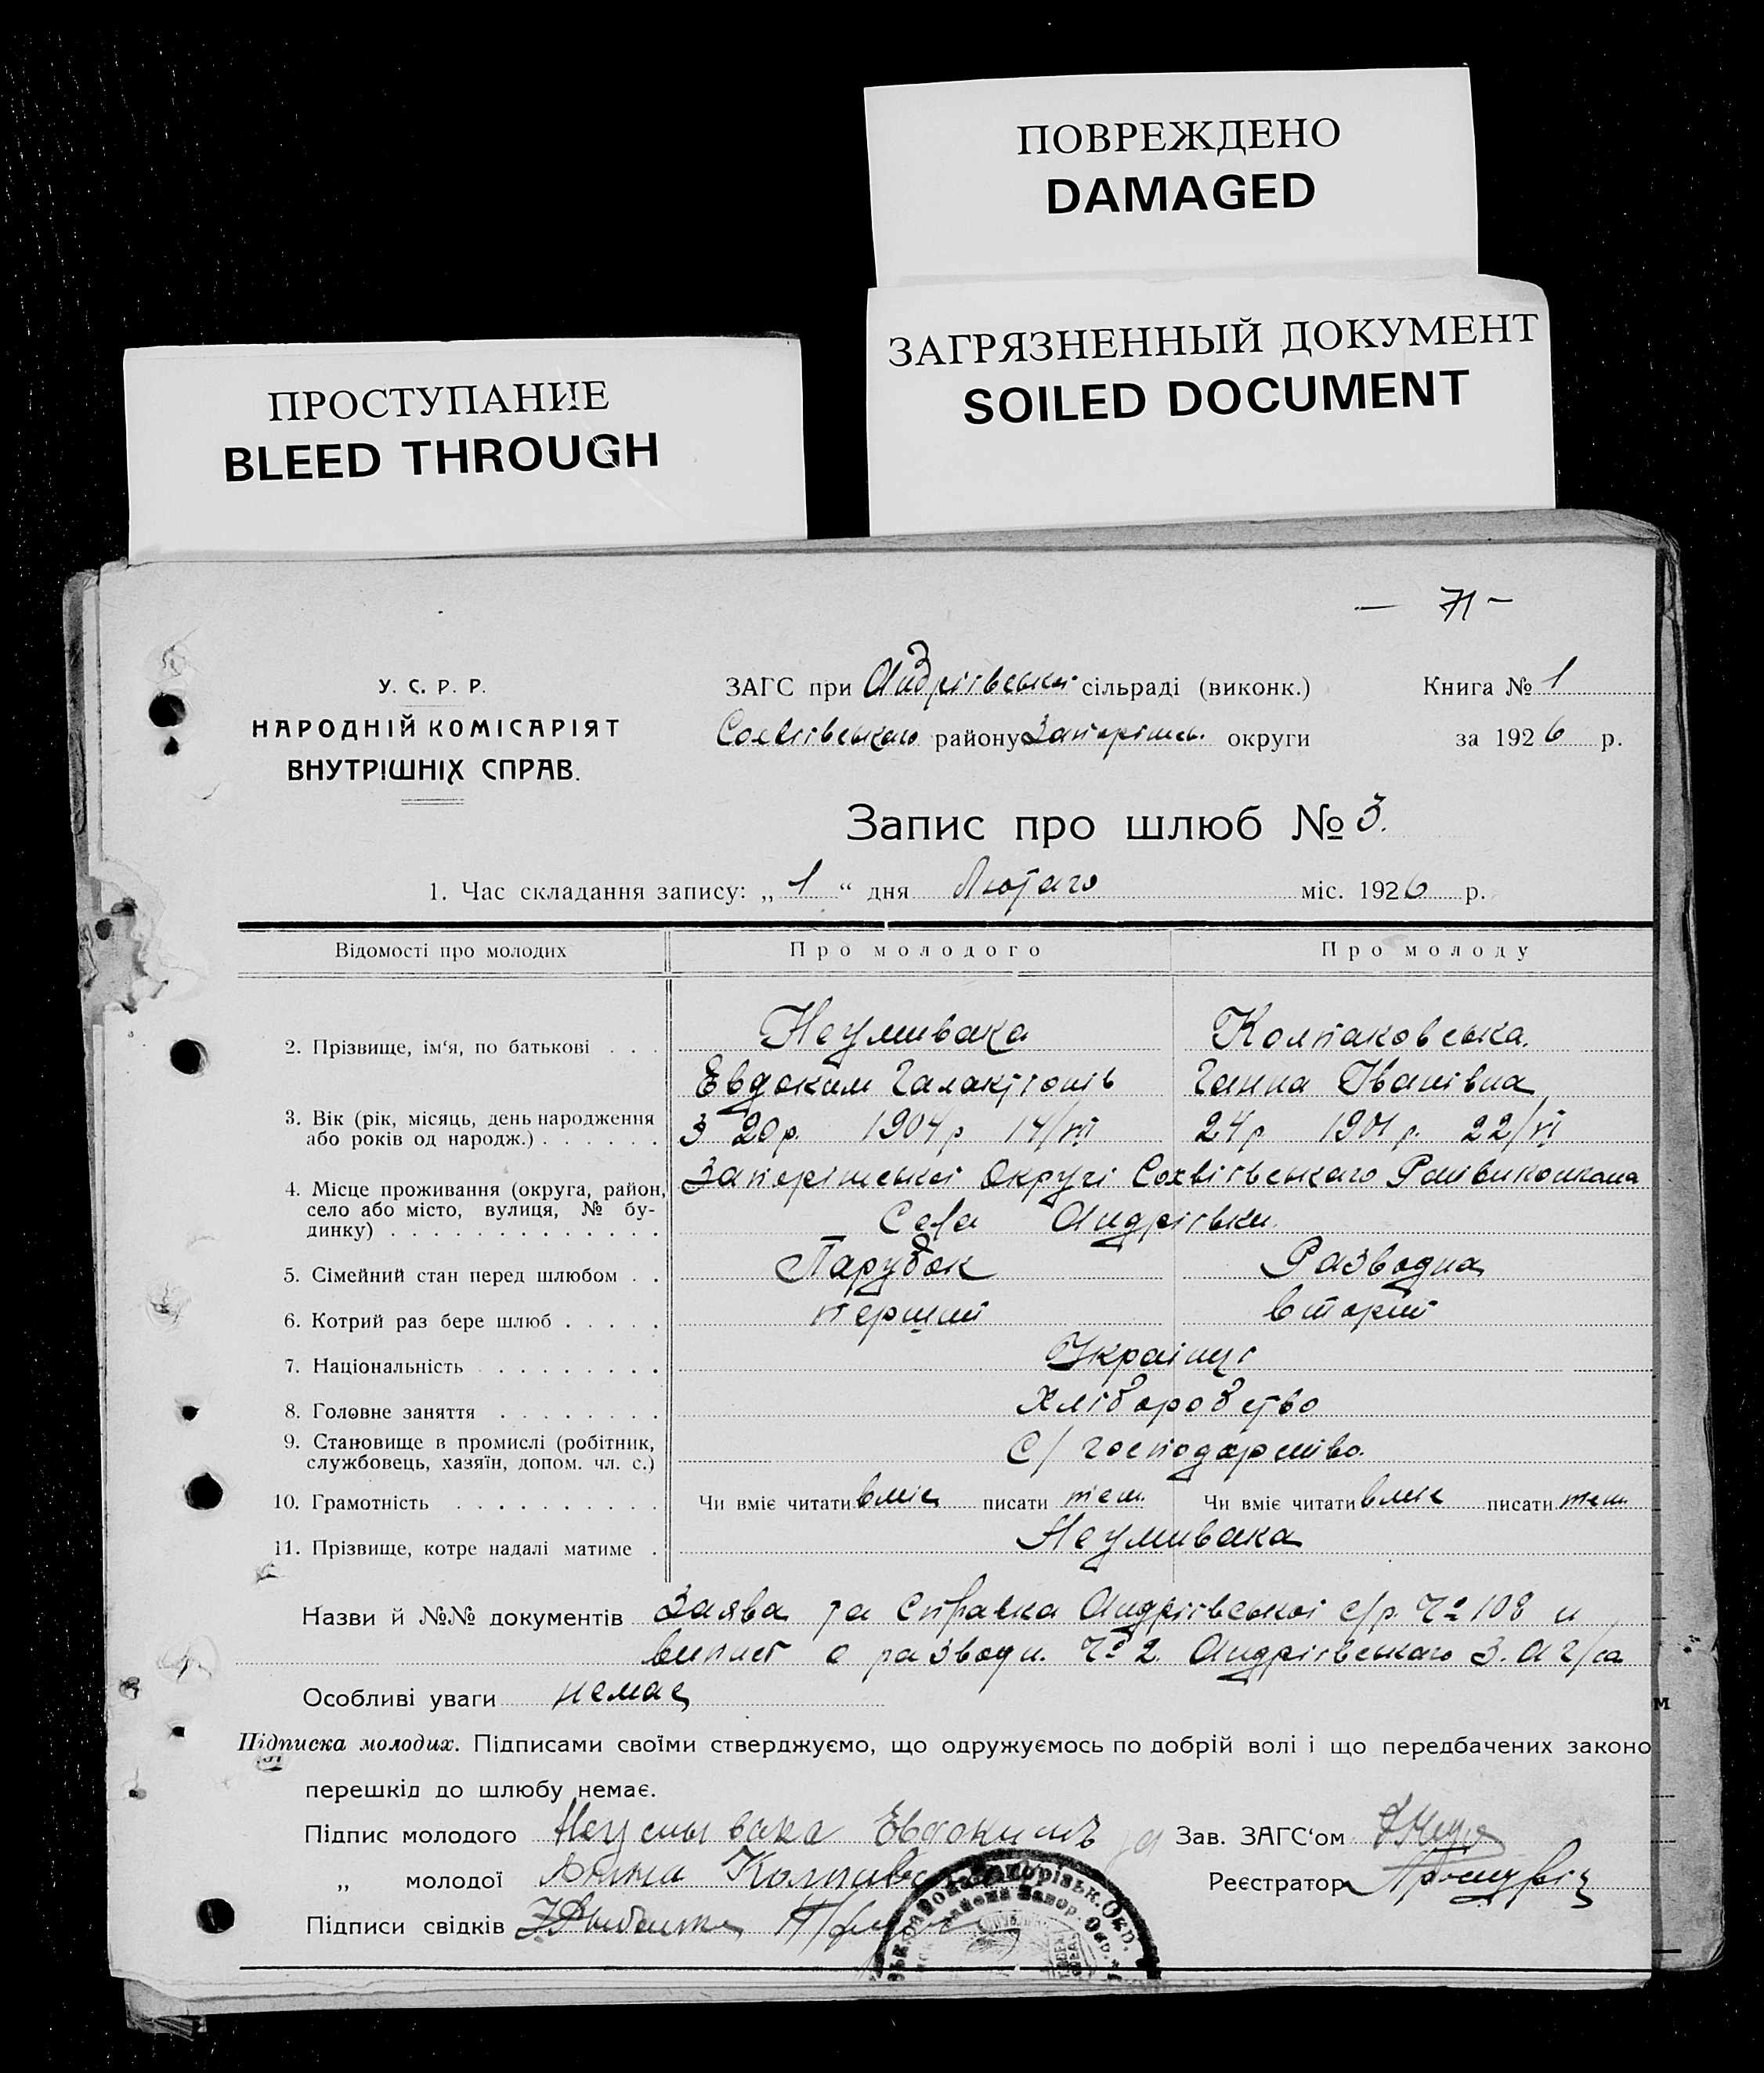 ПОВРЕЖДЕНО
DAMAGED
ЗАГРЯЗНЕННЫЙ ДОКУМЕНТ
SOILED DOCUMENT
ПРОСТУПАНИЕ
BLEED THROUGH
— 71 —
У. С. Р. Р.
НАРОДНІЙ КОМІСАРІЯТ
ВНУТРІШНІХ СПРАВ.
ЗАГС при Андріівськой сільраді (виконк.)
Софіівського району Запоріжськ. округи
Книга № 1
за 1926 р.
Запис про шлюб № 3.
1. Час складання запису: „ 1 “ дня Лютаго міс. 1926 р.
Відомості про молодих Про молодого Про молоду
2. Прізвище, ім‘я, по батькові . . . Неумивака Колпаковська.
Евдоким Галактіонів Ганна Іванівна
3. Вік (рік, місяць, день народження
або років од народж.) . . . . . . З 20 р. 1904 р 14/VII 24 р 1901 р. 22/VI
4. Місце проживання (округа, район, Запоріжської Округі Софіівського
село або місто, вулиця, № бу-
динку) . . . . . . . . . . . . . Села Андріівки
5. Сімейний стан перед шлюбом . . Парубок Разводна
6. Котрий раз бере шлюб . . . . . перший вторий
7. Національність . . . . . . . . Українці
8. Головне заняття . . . . . . . . Хліборобство
9. Становище в промислі (робітник,
службовець, хазяїн, допом. чл. с.) С/господарство.
10. Грамотність . . . . . . . . . . Чи вміє читати вміє писати теж. Чи вміє читати вміє писати теж.
11. Прізвище, котре надалі матиме . Неумивака
Назви й №№ документів Заява та Справка Андріівської с/р. Чо 108 и
випис о разводи. Чо 2 Андріівського З.А г/са
Особливі уваги немає
Підписка молодих. Підписами своїми стверджуємо, що одружуємось по добрій волі і що передбачених законо
м
перешкід до шлюбу немає.
Підпис молодого Неумывака Евдокимъ
Зав. ЗАГС‘ом
„ молодої Анна
Реєстратор
Підписи свідків